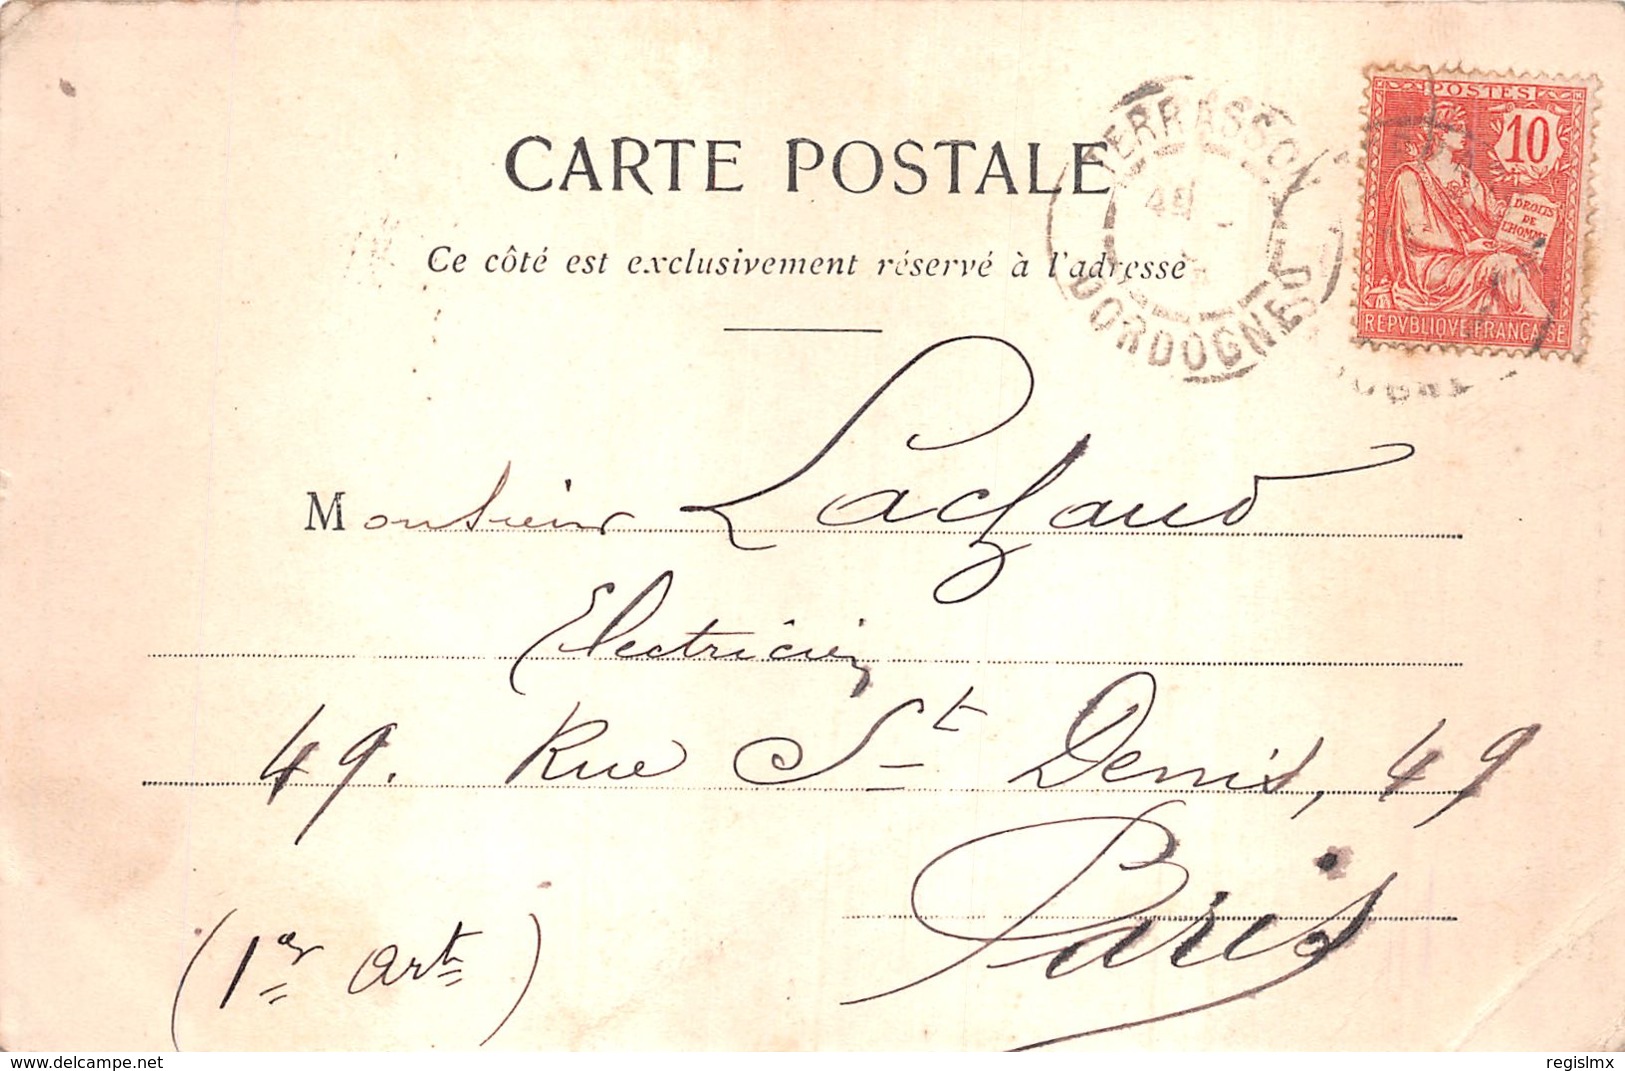 CARTE POSTALE
Ce côté est exclusivement réservé à l'adresse
TERRASSON
DORDOGNE
POSTES
10
DROITS
DE
L'HOMME
REPVBLIQVE FRANÇAISE
Monsieur Lachaud
Electricien
49. Rue St Denis, 49
Paris
(1er arrt)
https://www.delcampe.net
regislmx